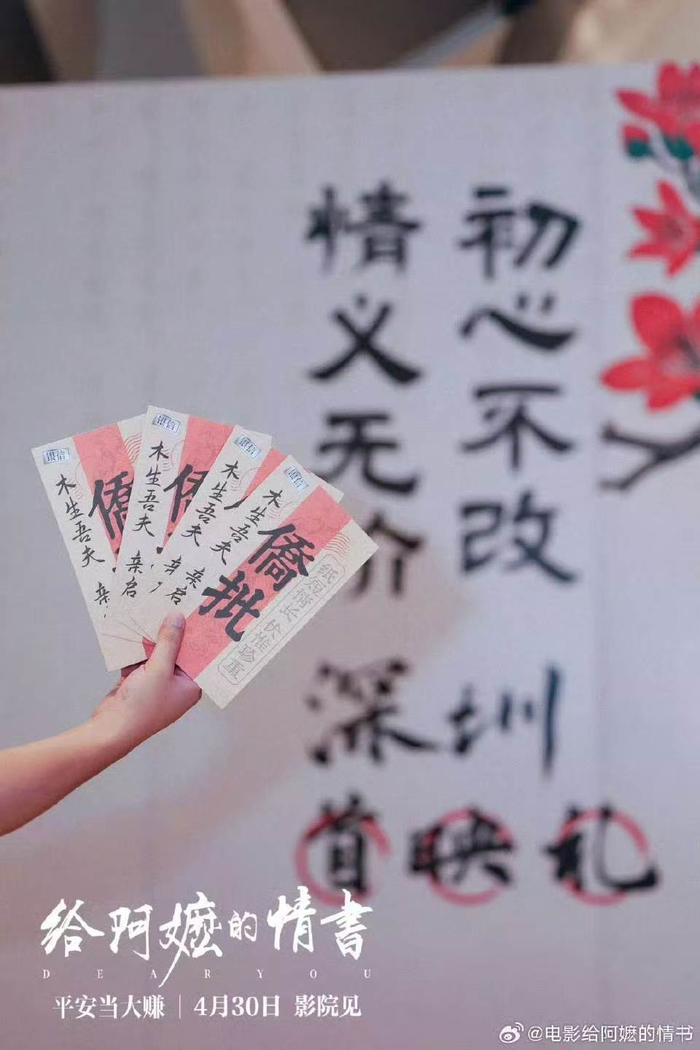 初心不改
情义无价
深圳
首映礼
木生吾夫 亲
僑
木生吾夫
僑
木生吾夫 亲启
木生吾夫 亲启
僑批
纸短情长 伏惟珍重
给阿嬷的情書
DEAR YOU
平安当大赚 | 4月30日 影院见
@电影给阿嬷的情书